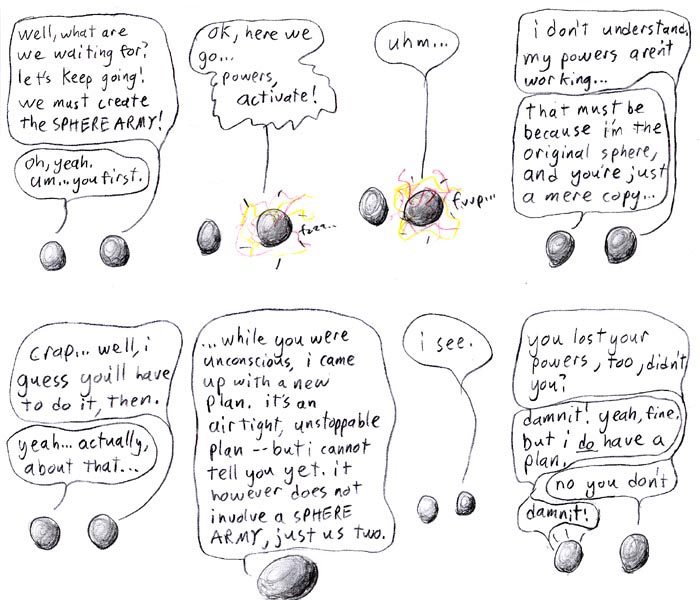 well, what are
we waiting for?
let's keep going!
we must create
the SPHERE ARMY!
oh, yeah.
um... you first.
ok, here we
go...
powers,
activate!
fzzz...
uhm...
fvvp...
i don't understand.
my powers aren't
working...
that must be
because i'm the
original sphere,
and you're just
a mere copy...
crap... well, i
guess you'll have
to do it, then.
yeah... actually,
about that...
...while you were
unconscious, i came
up with a new
plan. it's an
airtight, unstoppable
plan -- but i cannot
tell you yet. it
however does not
involve a SPHERE
ARMY, just us two.
i see.
you lost your
powers, too, didn't
you?
damnit! yeah, fine.
but i do have a
plan.
no you don't
damnit!